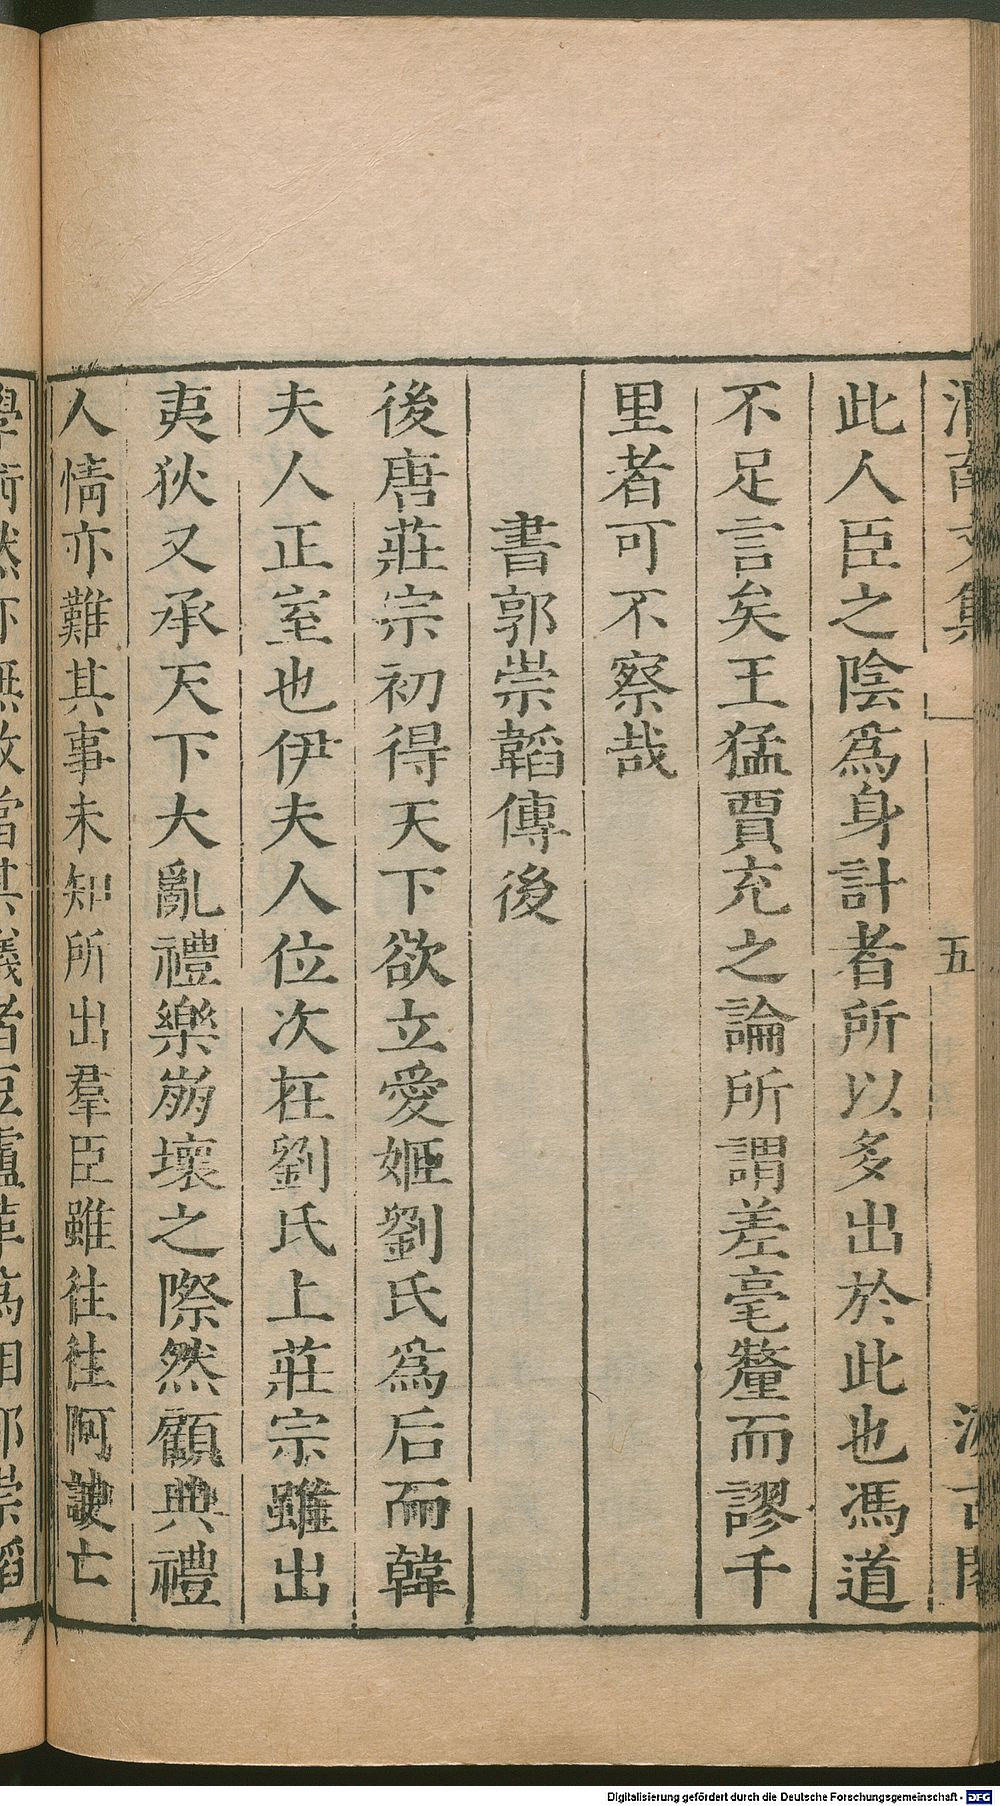 渭南文集 一 五 汲古閣
此人臣之陰爲身計者所以多出於此也馮道
不足言矣王猛賈充之論所謂差毫釐而謬千
里者可不察哉
書郭崇韜傳後
後唐莊宗初得天下欲立愛姬劉氏爲后而韓
夫人正室也伊夫人位次在劉氏上莊宗雖出
夷狄又承天下大亂禮樂崩壞之際然顧典禮
人情亦難其事未知所出羣臣雖往往阿諛亡
學術然亦無敢當其議者豆盧革爲相郭崇韜
Digitalisierung gefördert durch die Deutsche Forschungsgemeinschaft - DFG